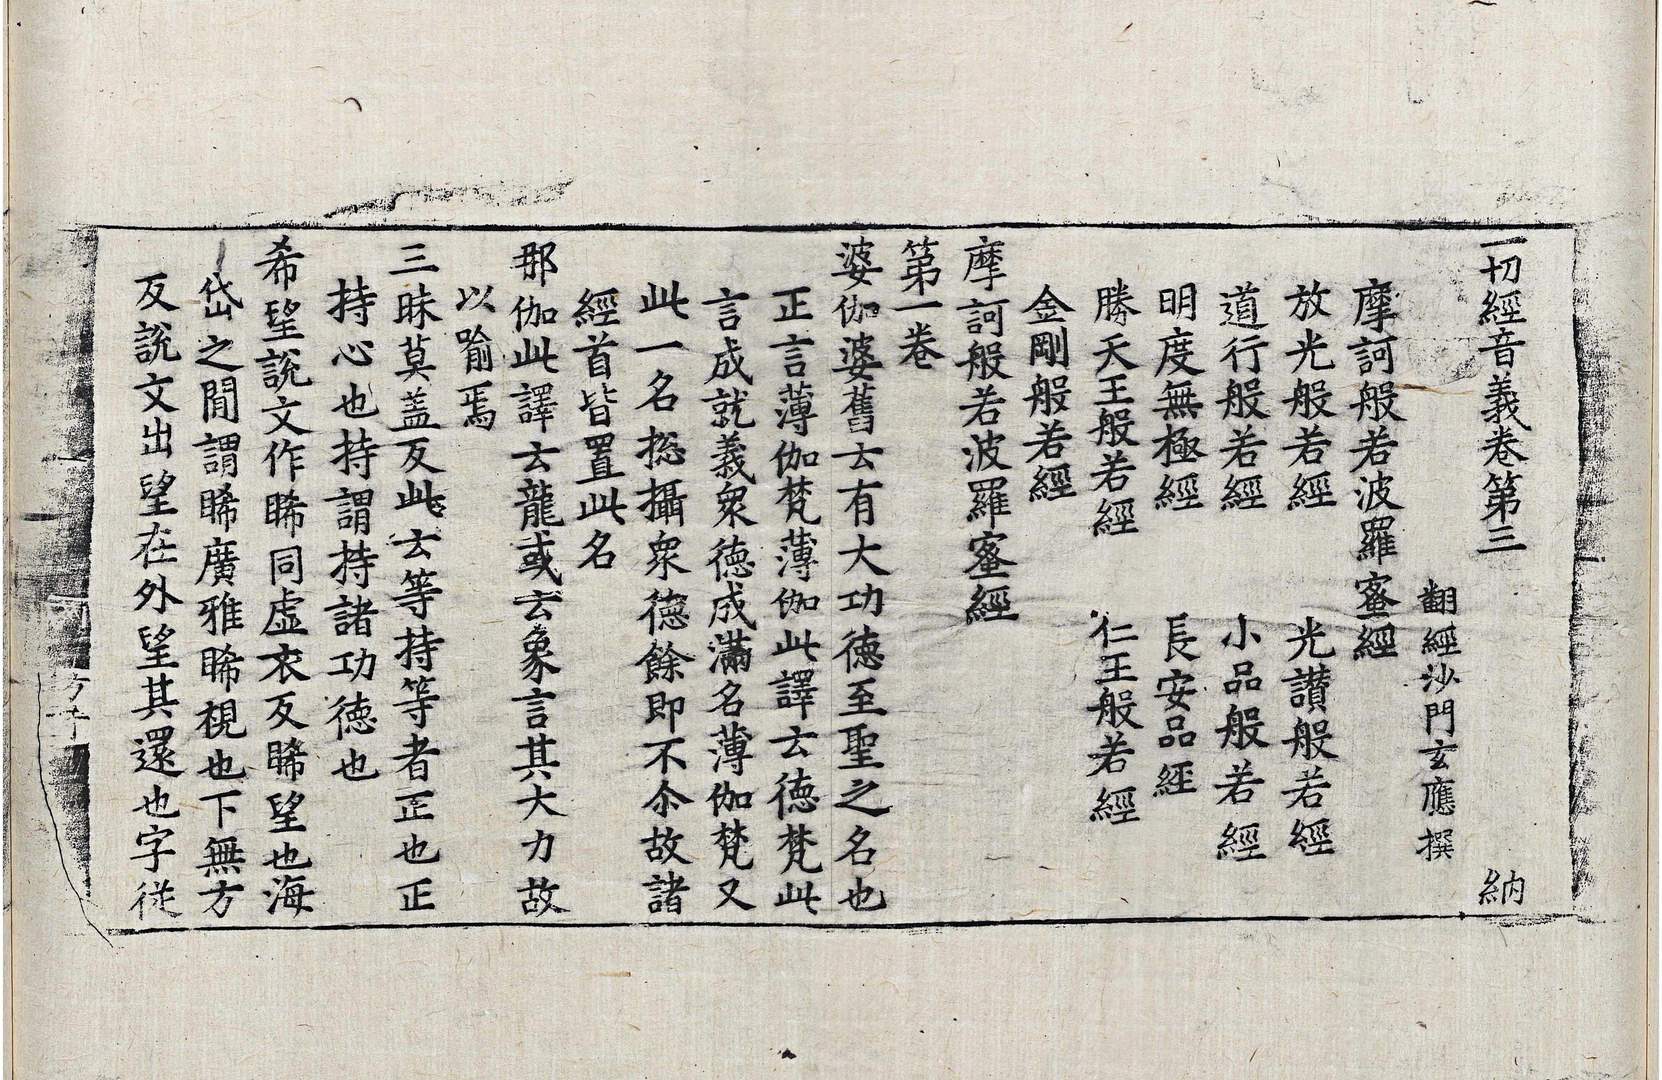 一切經音義卷第三 納
翻經沙門玄應撰
摩訶般若波羅蜜經
放光般若經 光讃般若經
道行般若經 小品般若經
明度無極經 長安品經
勝天王般若經 仁王般若經
金剛般若經
摩訶般若波羅蜜經
第一卷
婆伽婆舊云有大功德至聖之名也
正言薄伽梵薄伽此譯云德梵此
言成就義衆德成滿名薄伽梵又
此一名摠攝衆德餘即不尒故諸
經首皆置此名
那伽此譯云龍或云象言其大力故
以喻焉
三昧莫盖反此云等持等者正也正
持心也持謂持諸功德也
希望說文作睎同虛衣反睎望也海
岱之閒謂睎廣雅睎視也下無方
反說文出望在外望其還也字從